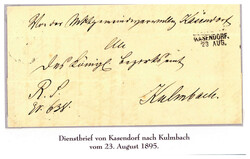 Von der Marktgemeindeverwaltung Kasendorf
KASENDORF.
23 AUG.
An
das königl. Bezirksamt
R. S.
Nr. 634.
Kulmbach.
Dienstbrief von Kasendorf nach Kulmbach
vom 23. August 1895.